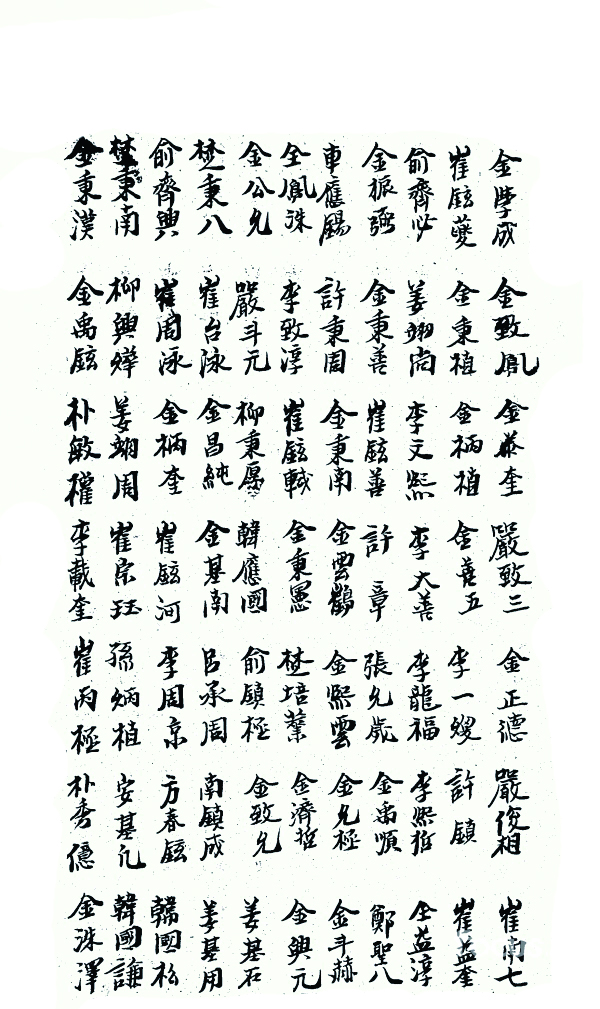 金學成 金致鳳 金泰奎 嚴致三 金正德 嚴俊相 崔南七
崔鉉夔 金秉植 金柄植 金善五 李一燮 許鎭 崔益奎
俞齊必 姜翊尚 李文熙 李大善 李龍福 李熙哲 全益淳
金振弼 金秉善 崔鉉善 許章 張允 金禹順 鄭聖八
車應賜 許秉周 金秉南 金雲鶴 金熙雲 金允極 金斗赫
全鳳洙 李致淳 崔鉉軾 金秉憲 楚培業 金濟哲 金興元
金公允 嚴斗元 柳秉厚 韓應國 俞鎭極 金致允 姜基石
楚秉八 崔台泳 金昌純 金基南 呂承周 南鎭成 姜基用
俞齊興 崔周泳 金柄奎 崔鉉河 李周京 方春鉉 韓國松
楚秉南 柳興燁 姜翊周 崔宗珏 孫炳植 安基凡 韓國謙
金秉漢 金禹鉉 朴敏權 李載奎 崔丙極 朴秀億 金洙澤